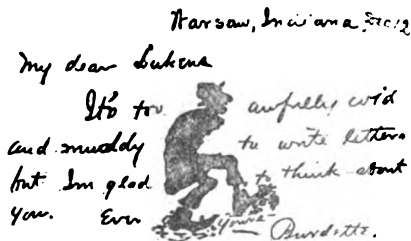 Warsaw, Indiana, Dec 12
My dear Lukens
It's too awfully cold
and muddy to write letters
but I'm glad to think about
you. Ever Yours
Burdette.